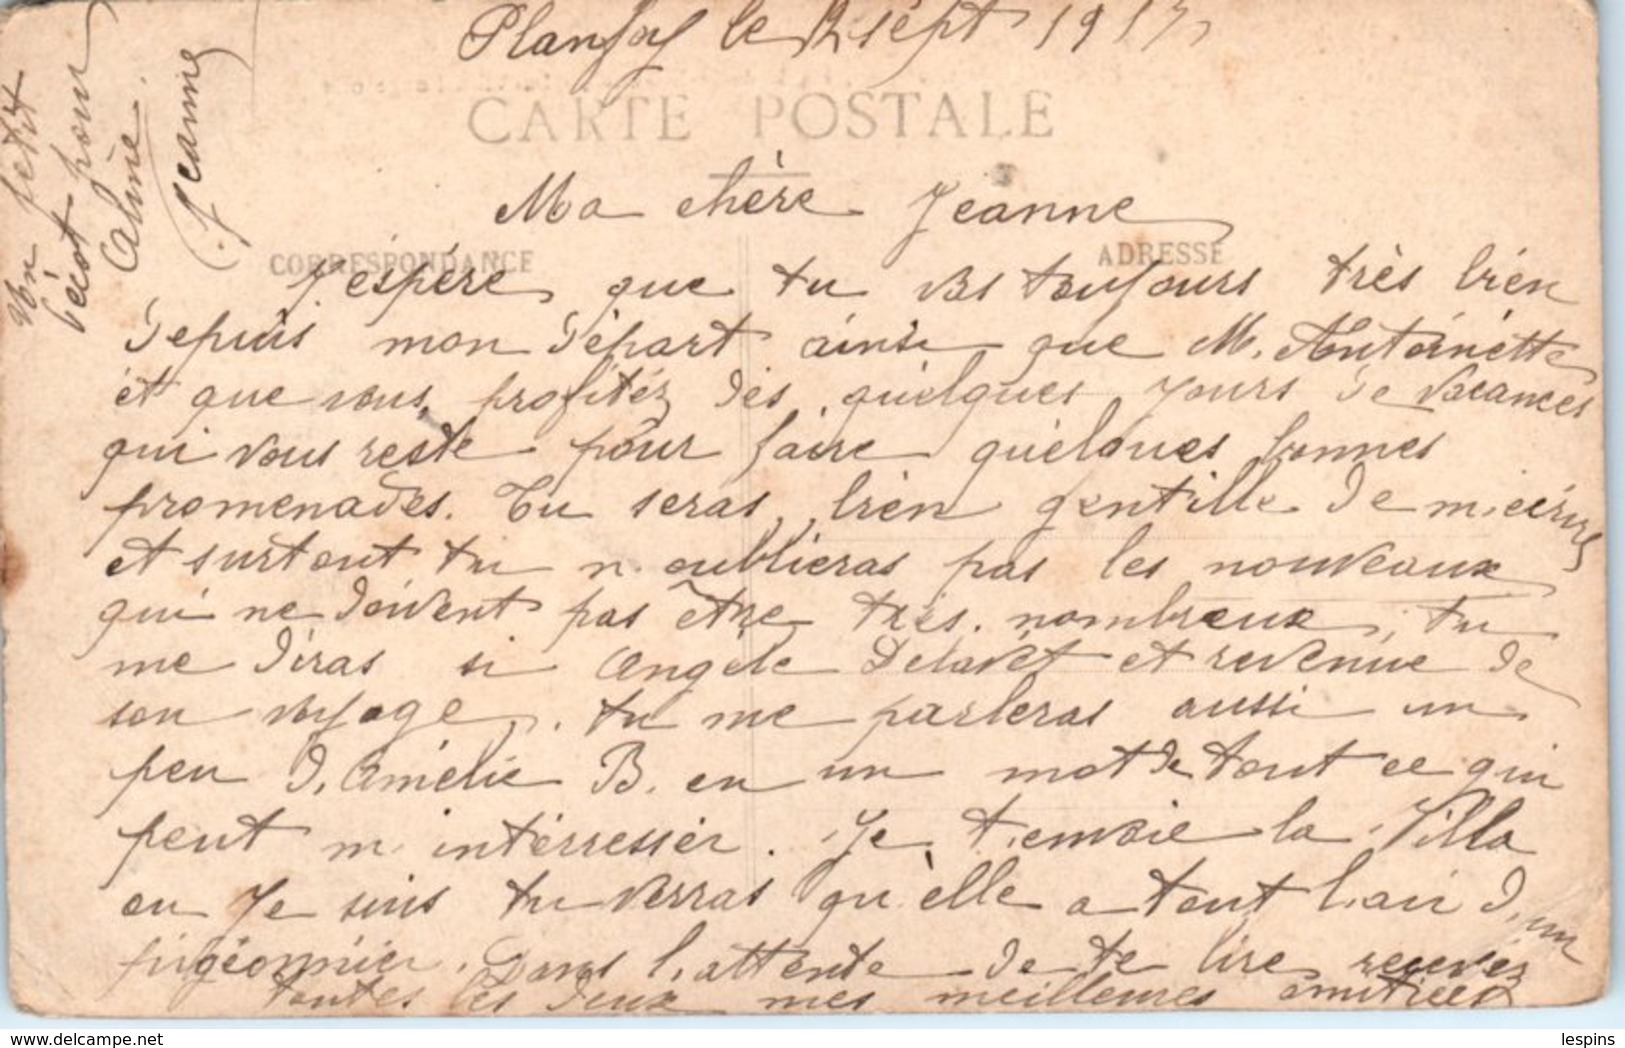 le 12 sept 191
CARTE POSTALE
Ma chère Jeanne
CORRESPONDANCE
ADRESSE
J'éspére que tu vas toujours très bien
depuis mon départ ainsi que M. Antoinette
et que vous profitéz des quelques jours de vacances
qui vous reste pour faire quelques bonnes
promenades. Tu seras bien gentille de m'écrire
et surtout tu n'oublieras pas les nouveaux
qui ne doivent pas être très nombreux, tu
me diras si Angèle Delavet et revenue de
son voyage, tu me parleras aussi un
peu d'Amélie B. en un mot de tout ce qui
peut m'intérresser. Je t'envoie la Villa
ou Je suis tu verras qu'elle a tout l'air d'un
pigéonnier. Dans l'attente de te lire recevéz
toutes les deux mes meilleures amitiées
Jeanne
Un petit
bécot pour
Caline
lespins
https://www.delcampe.net